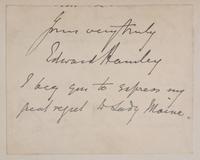 Yours very truly
Edward Hamley
I beg you to express my
great regret to Lady Maine.